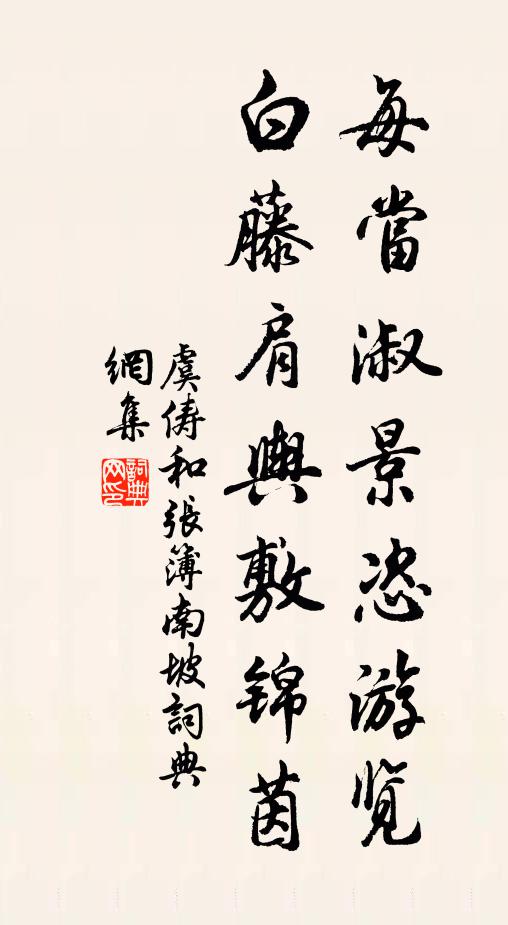 每當淑景恣游览
白藤肩輿敷錦茵
虞儔和張簿南坡詞典
網集
詞典
网印